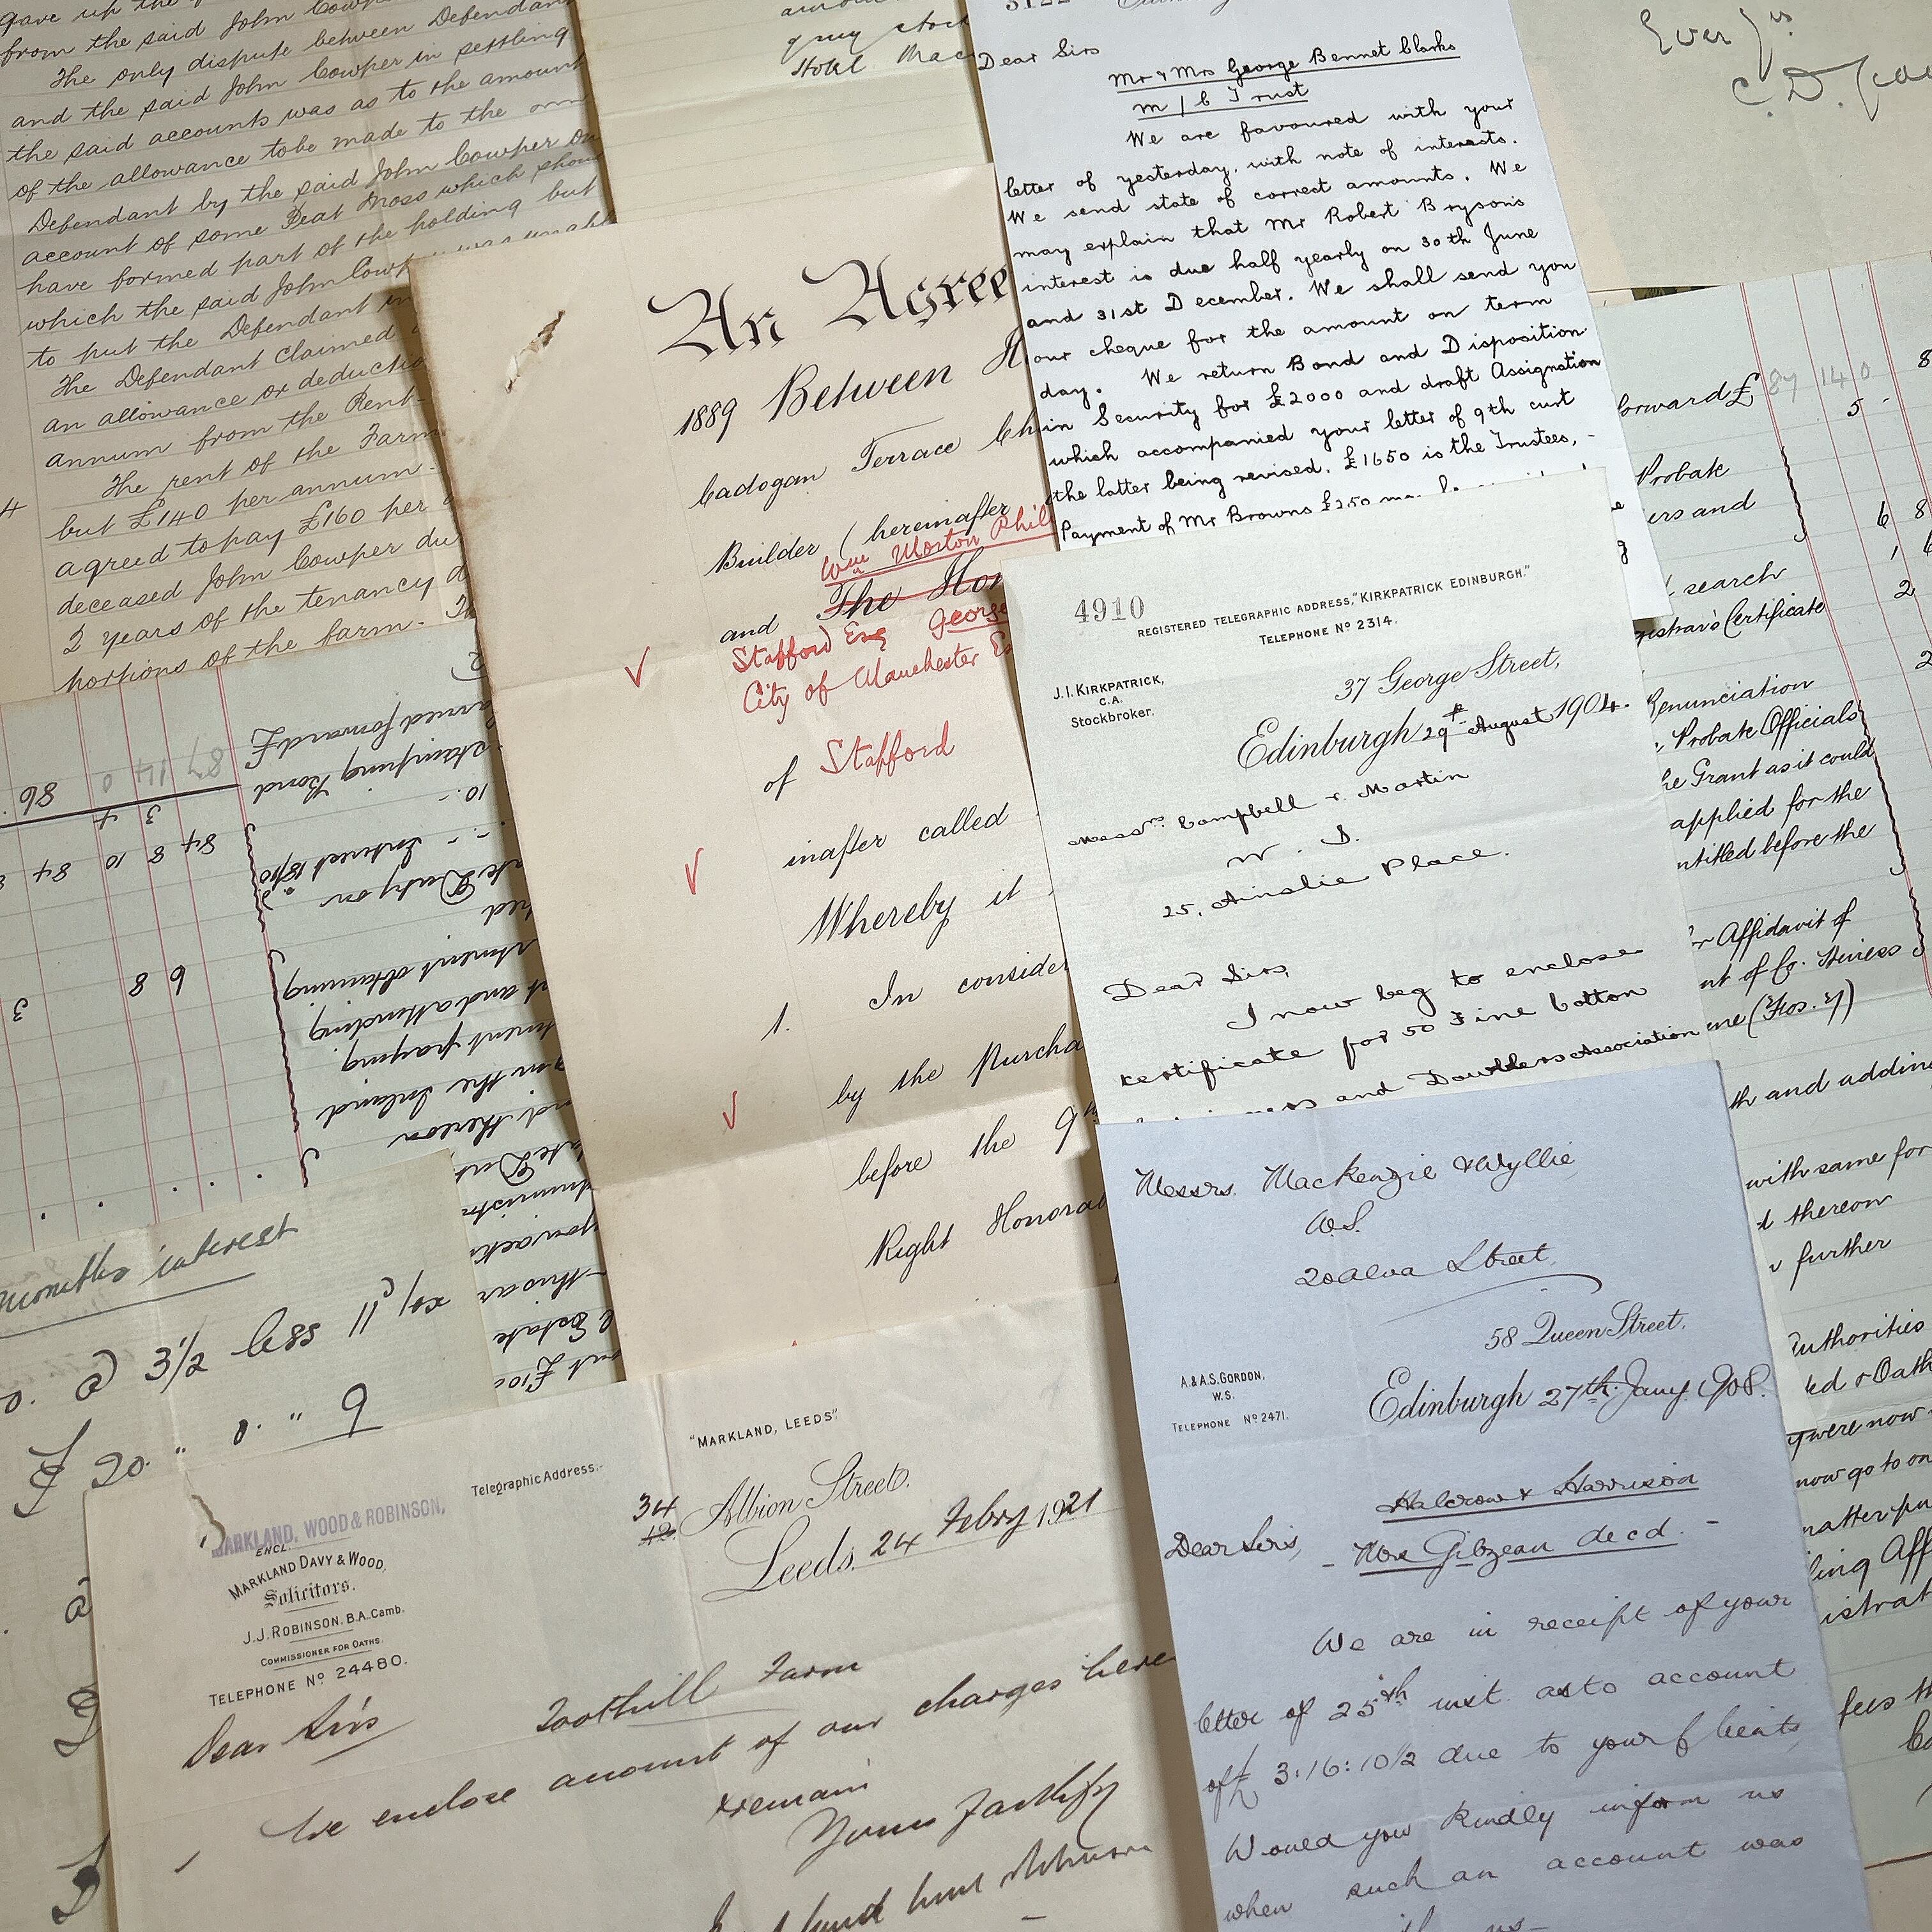 gave up the
from the said John Cowper
The only dispute between Defendant
and the said John Cowper in settling
the said accounts was as to the amount
of the allowance to be made to the
Defendant by the said John Cowper on
account of some Peat Moss which shou
have formed part of the holding but
which the said John Cowp was unabl
to put the Defendant in
The Defendant claimed
an allowance or deductio
annum from the Rent-
The rent of the Farm
but £140 per annum-
agreed to pay £160 per
deceased John Cowper du
2 years of the tenancy
portions of the farm. Th
grey stock
Hotel Mac
An Agree
1889 Between H
Cadogan Terrace Ch
Builder (hereinafter
Wm Morton Phil
and The Hon
Stafford Esq George
City of Manchester Es
of Stafford
inafter called
Whereby it
1. In consider
by the Purcha
before the 9th
Right Honorab
3122
Dear Sirs
Mr & Mrs George Bennet Clarks
M/C Trust
We are favoured with your
letter of yesterday, with note of interests.
We send state of correct amounts. We
may explain that Mr Robert Bryson's
interest is due half yearly on 30th June
and 31st December. We shall send you
our cheque for the amount on term
day. We return Bond and Disposition
in Security for £2000 and draft Assignation
which accompanied your letter of 9th curt
the latter being revised. £1650 is the Trustees,-
Payment of Mr Browns £250 may be
Ever yrs
C.D.
4910
REGISTERED TELEGRAPHIC ADDRESS, "KIRKPATRICK EDINBURGH."
TELEPHONE No 2314.
J.I. KIRKPATRICK,
C.A.
Stockbroker.
37 George Street,
Edinburgh 29th August 1904.
Messrs. Campbell & Martin
W.S.
25, Ainslie Place.
Dear Sirs,
I now beg to enclose
certificate for 50 Fine Cotton
and Doublers Association
Messrs. Mackenzie & Wyllie
W.S.
20 Alva Street.
58 Queen Street.
A. & A.S. GORDON,
W.S.
TELEPHONE No 2471.
Edinburgh 27th Jany. 1908.
Halcrow & Harrison
Dear Sirs, - Mrs Gibzean decd. -
We are in receipt of your
letter of 25th inst. as to account
of £3:16:10½ due to your clients,
Would you kindly inform us
when such an account was
forward £ 87 14 0
5 -
Probate
ers and
6 8
search
gistrar's Certificate
Renunciation
Probate Officials
he Grant as it could
applied for the
ntitled before the
r Affidavit of
nt of Co. Heiress
me (Fos. 7)
th and adding
with same for
d thereon
further
Authorities
ed & Oath
were now
now go to on
matter pu
ling Aff
istrat
fees th
arried forward £ 87 14 0
Stamping Bond
10.-
86
3 4
84 8 10 84
Interest 18/10
te Duty on
6 8
3
stment obtaining
t and attending
ment paying
on the Inland
nd thereon
Estate
out £100
months interest
@ 3½ less 11/
£20 " 0 " 9
MARKLAND, WOOD & ROBINSON,
ENCL.
MARKLAND DAVY & WOOD,
Solicitors.
J.J. ROBINSON. B.A. Camb.
COMMISSIONER FOR OATHS.
TELEPHONE No 24480.
Telegraphic Address:-
"MARKLAND, LEEDS"
34
12. Albion Street.
Leeds, 24 Febry 1921
Dear Sirs
Toothill Farm
We enclose account of our charges here
& remain
Yours faithfy